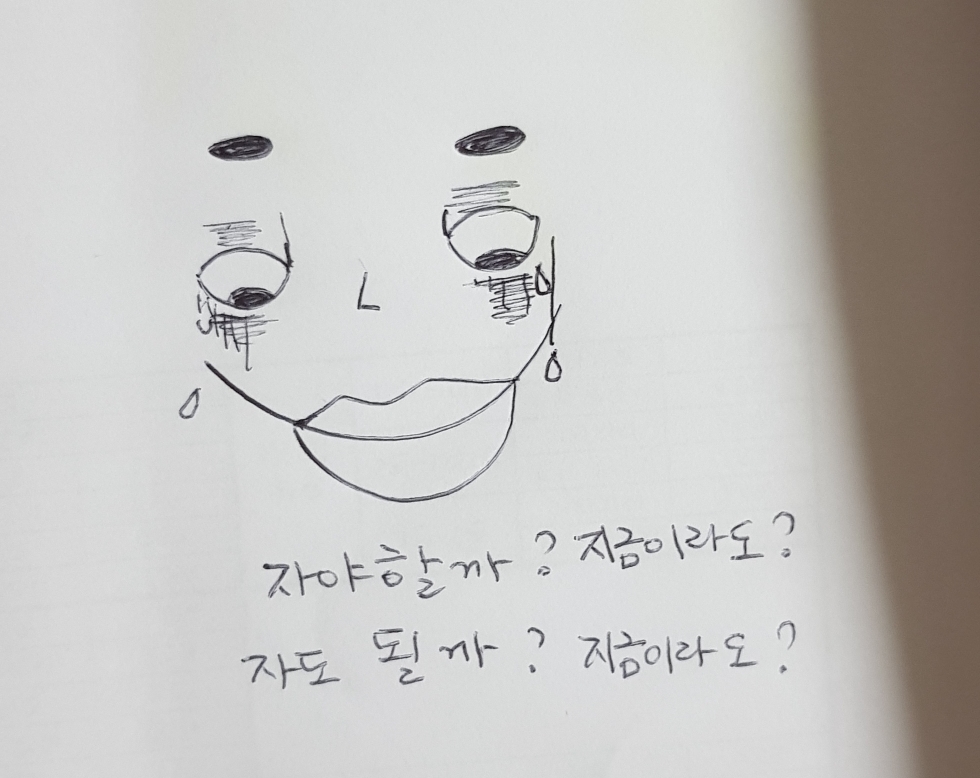 자야할까? 지금이라도?
자도 될까? 지금이라도?